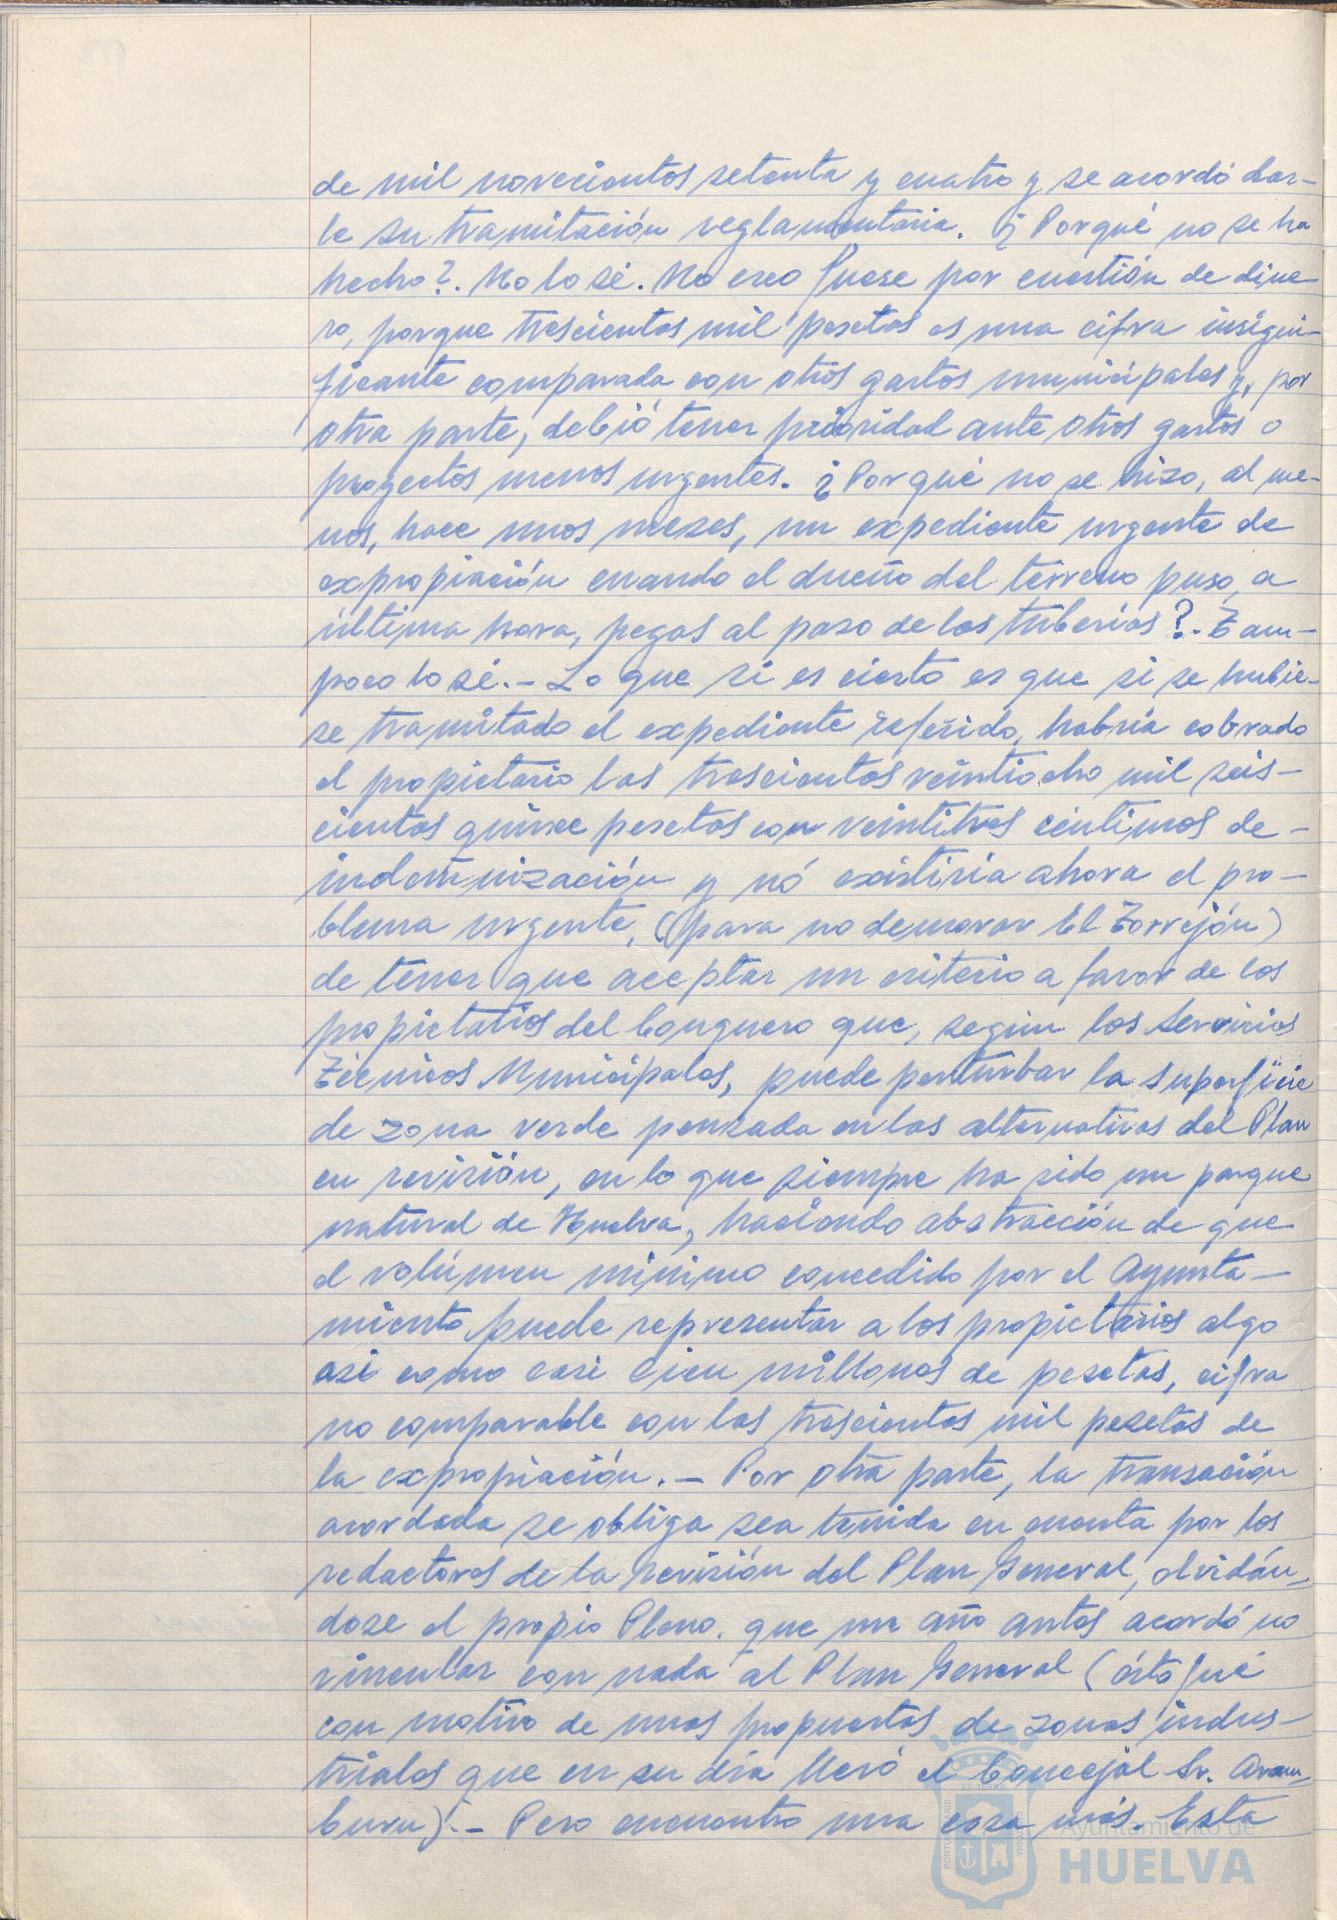 de mil novecientos setenta y cuatro y se acordó dar-
le su tramitación reglamentaria. ¿Porqué no se ha
hecho?. No lo sé. No creo fuese por cuestión de dine-
ro, porque trescientas mil pesetas es una cifra insigni-
ficante comparada con otros gastos municipales y, por
otra parte, debió tener prioridad ante otros gastos o
proyectos menos urgentes. ¿Porqué no se hizo, al me-
nos, hace unos meses, un expediente urgente de
expropiación cuando el dueño del terreno puso, a
última hora, pegas al paso de las tuberías?. Tam-
poco lo sé.- Lo que si es cierto es que si se hubie-
se tramitado el expediente referido, habría cobrado
el propietario las trescientas veintiocho mil seis-
cientas quince pesetas con veintitres céntimos de-
indemnización y nó existiría ahora el pro-
blema urgente, (para no demorar El Torrejón)
de tener que aceptar un criterio a favor de los
propietarios del Conquero que, según los Servicios
Técnicos Municipales, puede perturbar la superficie
de zona verde pensada en las alternativas del Plan
en revisión, en lo que siempre ha sido un parque
natural de Huelva, haciendo abstracción de que
el volúmen mínimo concedido por el Ayunta-
miento puede representar a los propietarios algo
asi como casi cien millones de pesetas, cifra
no comparable con las trescientas mil pesetas de
la expropiación.- Por otra parte, la transación
acordada se obliga sea tenida en cuenta por los
redactores de la Revisión del Plan General, olvidán-
dose el propio Pleno. que un año antes acordó no
vincular con nada al Plan General (ésto fué
con motivo de unas propuestas de zonas indus-
triales que en su día llevó el Concejal Sr. Aram-
buru).- Pero encuentro una cosa más. Esta
Ayuntamiento de
HUELVA